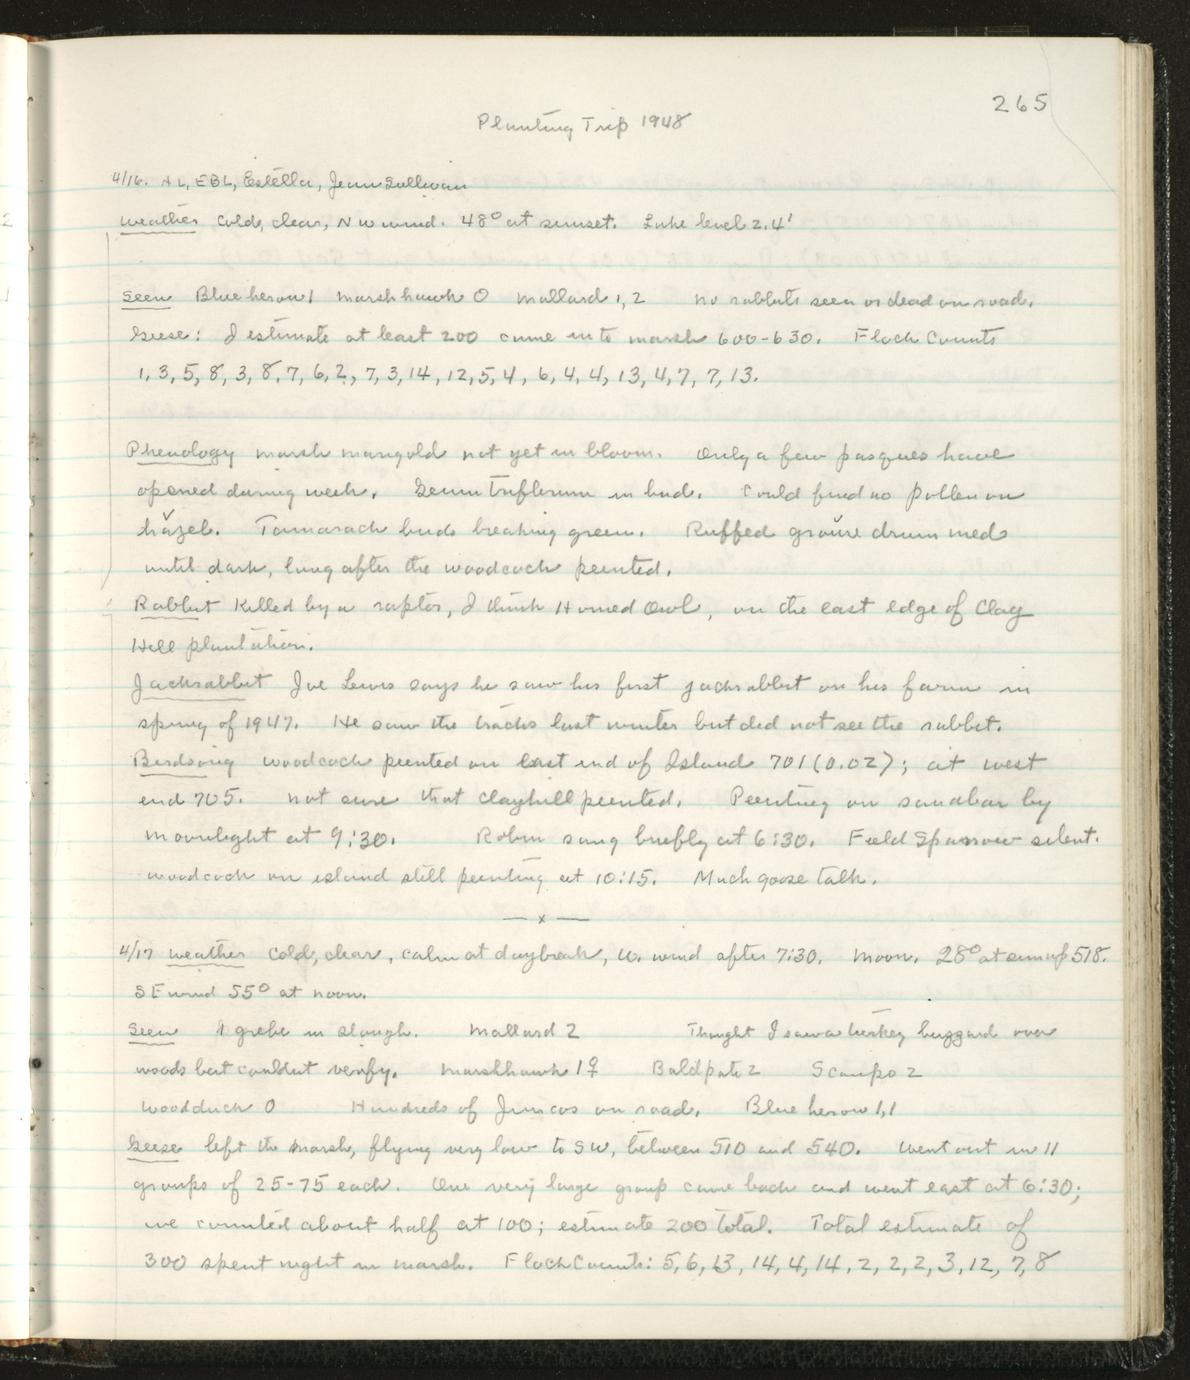 265
Planting Trip 1948
4/16. AL, EBL, Estella, Jean Sullivan
Weather Cold, clear, NW wind. 48° at sunset. Lake level 2.4'
Seen Blue heron 1 Marsh hawk 0 Mallard 1, 2 No rabbits seen or dead on road.
Geese: I estimate at least 200 came in to marsh 600-630. Flock Counts
1, 3, 5, 8, 3, 8, 7, 6, 2, 7, 3, 14, 12, 5, 4, 6, 4, 4, 13, 4, 7, 7, 13.
Phenology Marsh marigold not yet in bloom. Only a few pasques have
opened during week. Geum triflorum in bud. Could find no pollen on
hazel. Tamarack buds breaking green. Ruffed grouse drummed
until dark, long after the woodcock peented.
Rabbit Killed by a raptor, I think Horned Owl, on the east edge of Clay
Hill plantation.
Jackrabbit Joe Lewis says he saw his first jackrabbit on his farm in
spring of 1947. He saw the tracks last winter but did not see the rabbit.
Birdsong Woodcock peented on east end of Island 701 (0.02); at west
end 705. Not sure that clayhill peented. Peenting on sandbar by
moonlight at 9:30. Robin sang briefly at 6:30. Field Sparrow silent.
Woodcock on island still peenting at 10:15. Much goose talk.
— x —
4/17 Weather Cold, clear, calm at daybreak, W. wind after 7:30. Moon. 28° at sunup 518.
SE wind 55° at noon.
Seen 1 grebe in slough. Mallard 2 Thought I saw a turkey buzzard over
woods but couldnt verify. Marshhawk 1♀ Baldpate 2 Scaups 2
Woodduck 0 Hundreds of Juncos on road. Blue heron 1, 1
Geese left the marsh, flying very low to SW, between 510 and 540. Went out in 11
groups of 25-75 each. One very large group came back and went east at 6:30;
we counted about half at 100; estimate 200 total. Total estimate of
300 spent night in marsh. Flock Counts: 5, 6, 13, 14, 4, 14, 2, 2, 2, 3, 12, 7, 8